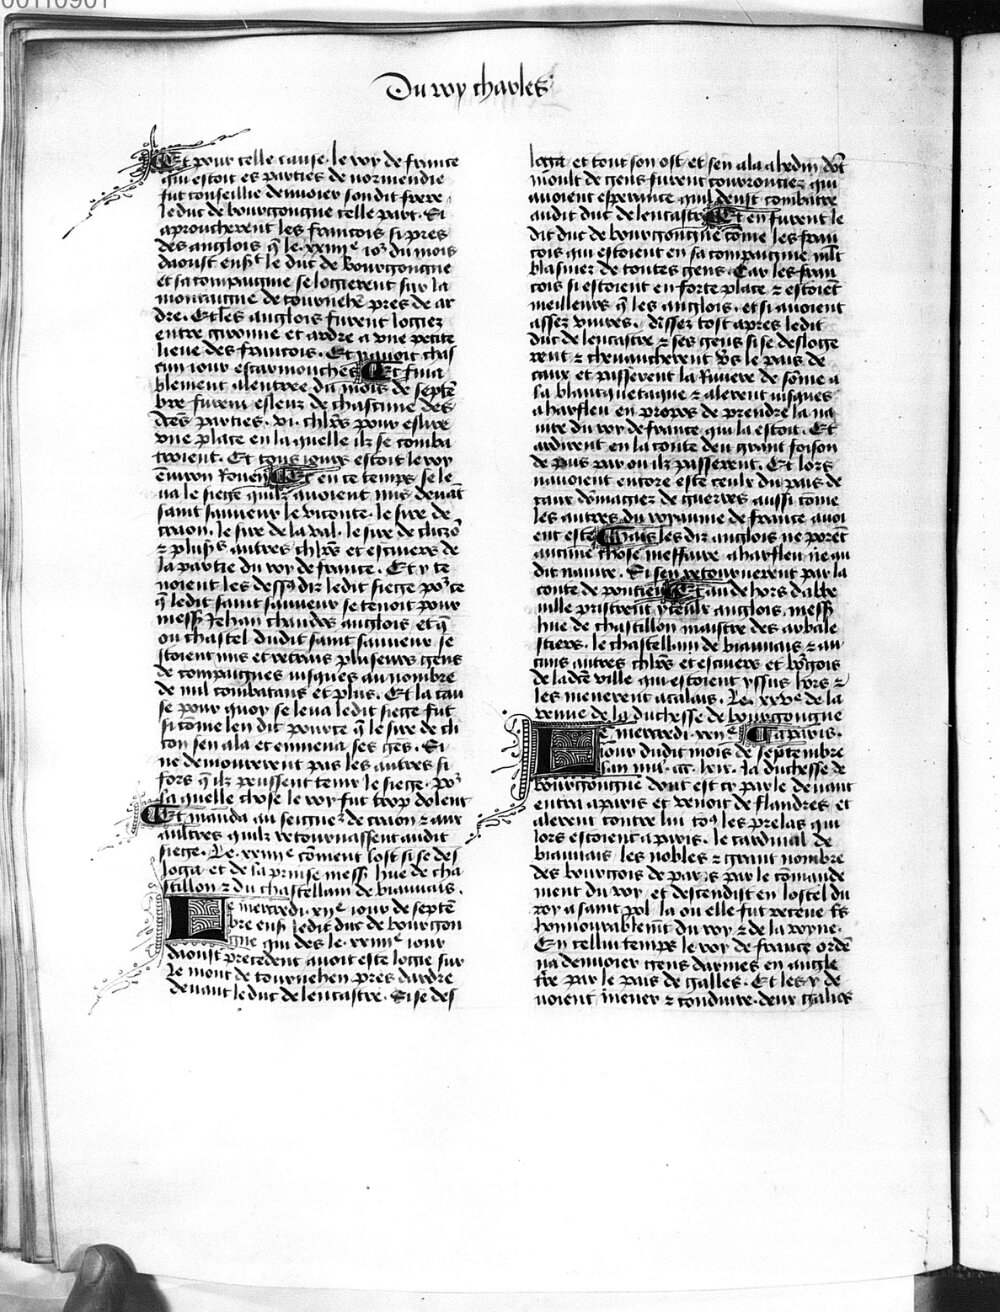 00110901
Du roy charles
Et pour celle cause le roy de france
qui estoit es parties de normendie
fut conseillie denvoier son dit frere
le duc de bourgongne celle part. Si
aproucherent les francois si pres
des anglois q̃ le xxiiii^e io^r du mois
daoust ens̃ le duc de bourgongne
et sa compaignie se logierent sur la
montaigne de tournehẽ pres de ar
dre. Et les anglois furent logiez
entre guionne et ardre a une petite
lieue des francois. Et y avoit chas
cun iour escarmouches Et fina
blement a lentree du mois de septẽ
bre furent esleuz de chascune des
dc̃es parties. vi. chl̃rs pour eslire
une place en la quelle ilz se comba
troient. Et tous iours estoit le roy
environ Rouen Et en ce temps se le
va le siege quilz avoient mis devãt
saint sauveur le viconte. le sire de
craon. le sire de la val. le sire de clicçõ
⁊ plus̃ autres chl̃rs et escuiers de
la partie du roy de france. Et y te
noient les dess̃ dit ledit siege po^r ce
q̃ ledit saint sauveur se tenoit pour
mess̃ Jehan chandos anglois et q̃
ou chastel dudit saint sauveur se
stoient mis et retrais plusieurs gens
de compaignes iusques au nombre
de mil combatans et plus. Et la cau
se pour quoy se leva ledit siege fut
si cõme len dit pource q̃ le sire de cli
con sen ala et enmena ses gẽs. Si
ne demourerent pas les autres si
fors q̃ ilz peussent tenir le siege. po^r
la quelle chose le roy fut trop dolent
Et manda au seignr̃ de craon ⁊ aux
aultres quilz retournassent audit
siege. Le. xxiiii^e cõment lost si se des
loga et de la prinse mess̃ hue de cha
stillon ⁊ du chastellain de biauvais.
Le mercredi. xii^e iour de septẽ
bre ens̃ ledit duc de bourgon
gne qui des le. xxiiii^e iour
daoust precedent avoit este logie sur
le mont de tournehen pres dardre
devant le duc de lencastre. Si se des
loga et tout son ost et sen ala a hedin dõt
moult de gens furent courrouciez qui
avoient esperance quil deust combatre
audit duc de lencastre Et en furent le
dit duc de bourgongne cõme les fran
cois qui estoient en sa compaignie mlt̃
blasmez de toutes gens. Car les fran
cois si estoient en forte place ⁊ estoiẽt
meilleurs q̃ les anglois. et si avoient
assez vivres. Assez tost apres ledit
duc de lencastre ⁊ ses gens si se desloge
rent ⁊ chevaucherent vs̃ le pais de
caux et passerent la Riviere de sõme a
la blanquetaque ⁊ alerent iusques
a harfleu en propos de prendre la na
vire du roy de france qui la estoit. Et
ardirent en la conte deu grant foison
de pais par ou ilz passerent. Et lors
navoient encore este ceulx du pais de
caux dõmagiez de guerres aussi cõme
les autres du royaume de france avoi
ent este Mais les diz anglois ne porẽt
aucune chose meffaire a harfleu ne au
dit navire. Si sen retournerent par la
conte de pontieu Et au dehors dabbe
ville pristrent yceulx anglois. mess̃
hue de chastillon maistre des arbale
striers. le chastellain de biauvais ⁊ au
cuns autres chl̃rs et escuiers et bõgois
de ladc̃e ville qui estoient yssus hors ⁊
les menerent a calais. Le. xxv^e de la
venue de la duchesse de bourgongne
Le mercredi. xvii^e a paris.
iour dudit mois de septembre
lan mil. ccc. lxix. la duchesse de
bourgongne dont est cy par le devant
entra a paris et venoit de flandres et
alerent contre lui to^s les prelas qui
lors estoient a paris. le cardinal de
biauvais les nobles ⁊ grant nombre
des bourgois de paris par le cõmande
ment du roy. et descendist en lostel du
roy a saint pol la ou elle fut receue tr̃s
honnourablemẽt du roy ⁊ de la royne.
En cellui temps le roy de france ordẽ
na denvoier gens darmes en angle
tr̃e par le pais de galles. Et les y de
voient mener ⁊ conduire. deux galios